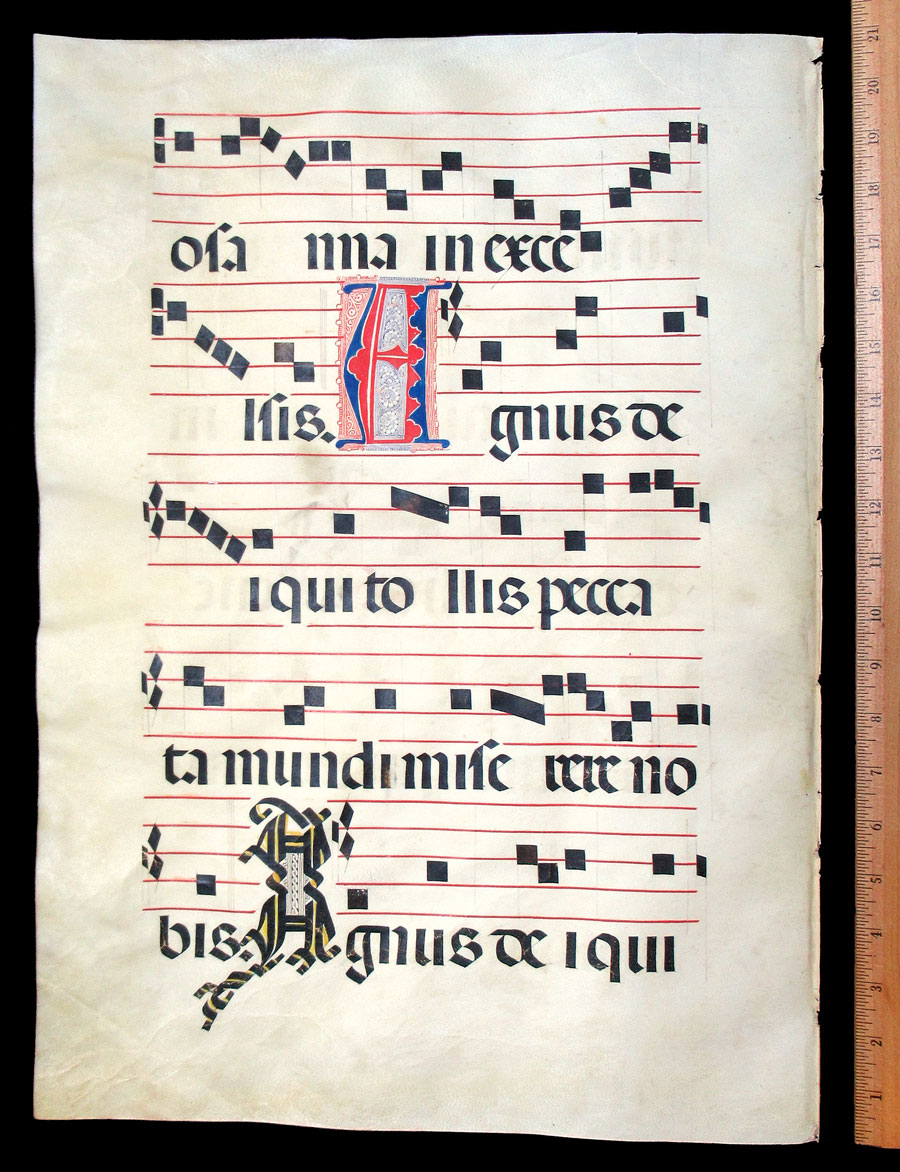 osa nna in exce
lsis. A gnus de
i qui to llis pecca
ta mundi mise rere no
bis. A gnus de i qui
21
20
19
18
17
16
15
14
13
12
11
10
9
8
7
6
5
4
3
2
1